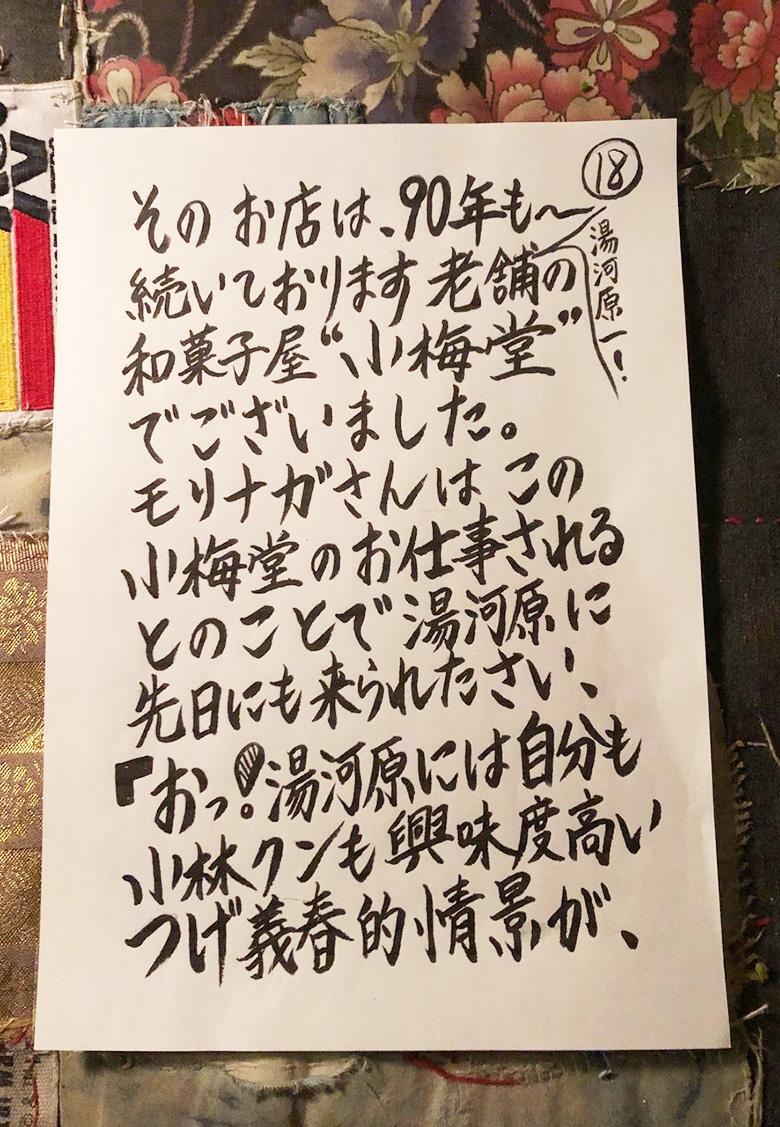 ⑱
湯河原一！
その お店は、90年も〜
続いております 老舗の
和菓子屋“小梅堂”
でございました。
モリナガさんは この
小梅堂のお仕事される
とのことで湯河原に
先日にも来られたさい、
『おっ！湯河原には自分も
小林クンも興味度高い
つげ義春的情景が、